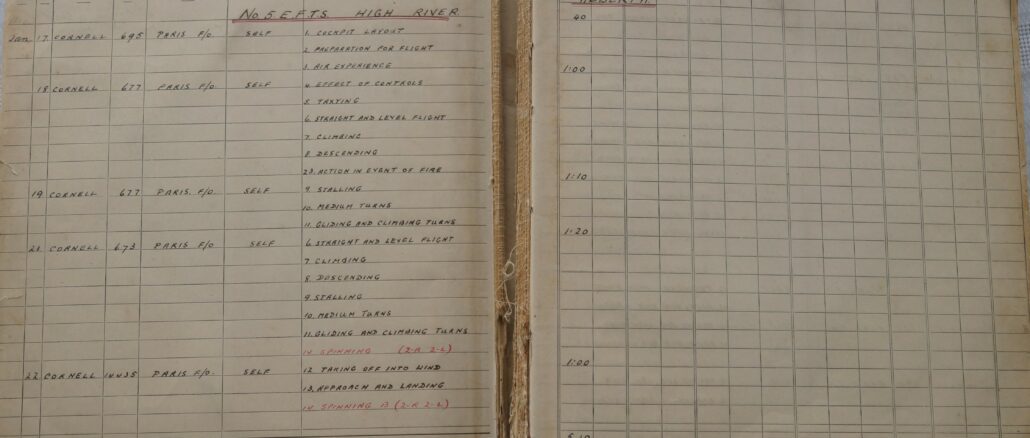 No. 5 E.F.T.S. HIGH RIVER.
Jan. 17 CORNELL 695 PARIS F/O SELF 1. COCKPIT LAYOUT 40
2. PREPARATION FOR FLIGHT
3. AIR EXPERIENCE 1:00
18 CORNELL 677 PARIS F/O SELF 4. EFFECT OF CONTROLS
5. TAXYING
6. STRAIGHT AND LEVEL FLIGHT
7. CLIMBING
8. DESCENDING
23. ACTION IN EVENT OF FIRE 1:10
19 CORNELL 677 PARIS. F/O. SELF 9. STALLING
10. MEDIUM TURNS
11. GLIDING AND CLIMBING TURNS 1:20
21 CORNELL 673 PARIS F/O SELF 6. STRAIGHT AND LEVEL FLIGHT
7. CLIMBING
8. DESCENDING
9. STALLING
10. MEDIUM TURNS
11. GLIDING AND CLIMBING TURNS
14. SPINNING (2-R 2-L) 1:00
22 CORNELL 14435 PARIS F/O. SELF 12. TAKING OFF INTO WIND
13. APPROACH AND LANDING
14. SPINNING B (2-R 2-L)
5:10